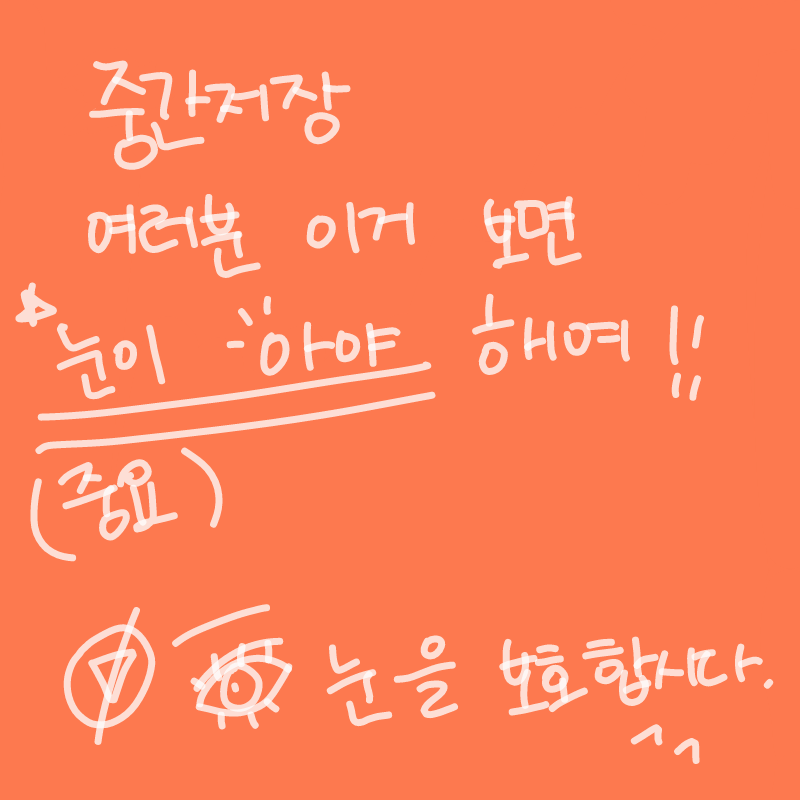 중간저장
여러분 이거 보면
눈이 아야 해여!!
(중요)
눈을 보호합시다.
^^